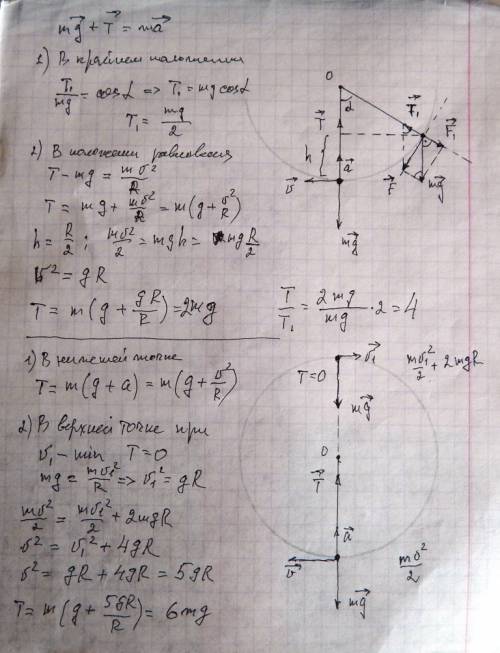 mg⃗ + T⃗ = ma⃗
1) В крайнем положении
T₁/mg = cos α => T₁ = mg cos α
T₁ = mg/2
2) В положении равновесия
T - mg = mv²/R
T = mg + mv²/R = m(g + v²/R)
h = R/2 ; mv²/2 = mgh = mg R/2
v² = gR
T = m(g + gR/R) = 2mg
T/T₁ = 2mg/mg · 2 = 4
O
α
T⃗₁
T⃗
F⃗₁
h
a⃗
F⃗
mg⃗
v⃗
mg⃗
1) В нижней точке
T = m(g + a) = m(g + v²/R)
2) В верхней точке при
v₁ - min T = 0
mg = mv₁²/R => v₁² = gR
mv²/2 = mv₁²/2 + 2mgR
v² = v₁² + 4gR
v² = gR + 4gR = 5gR
T = m(g + 5gR/R) = 6mg
v⃗₁
mv₁²/2 + 2mgR
T=0
mg⃗
O
T⃗
a⃗
v⃗
mv²/2
mg⃗